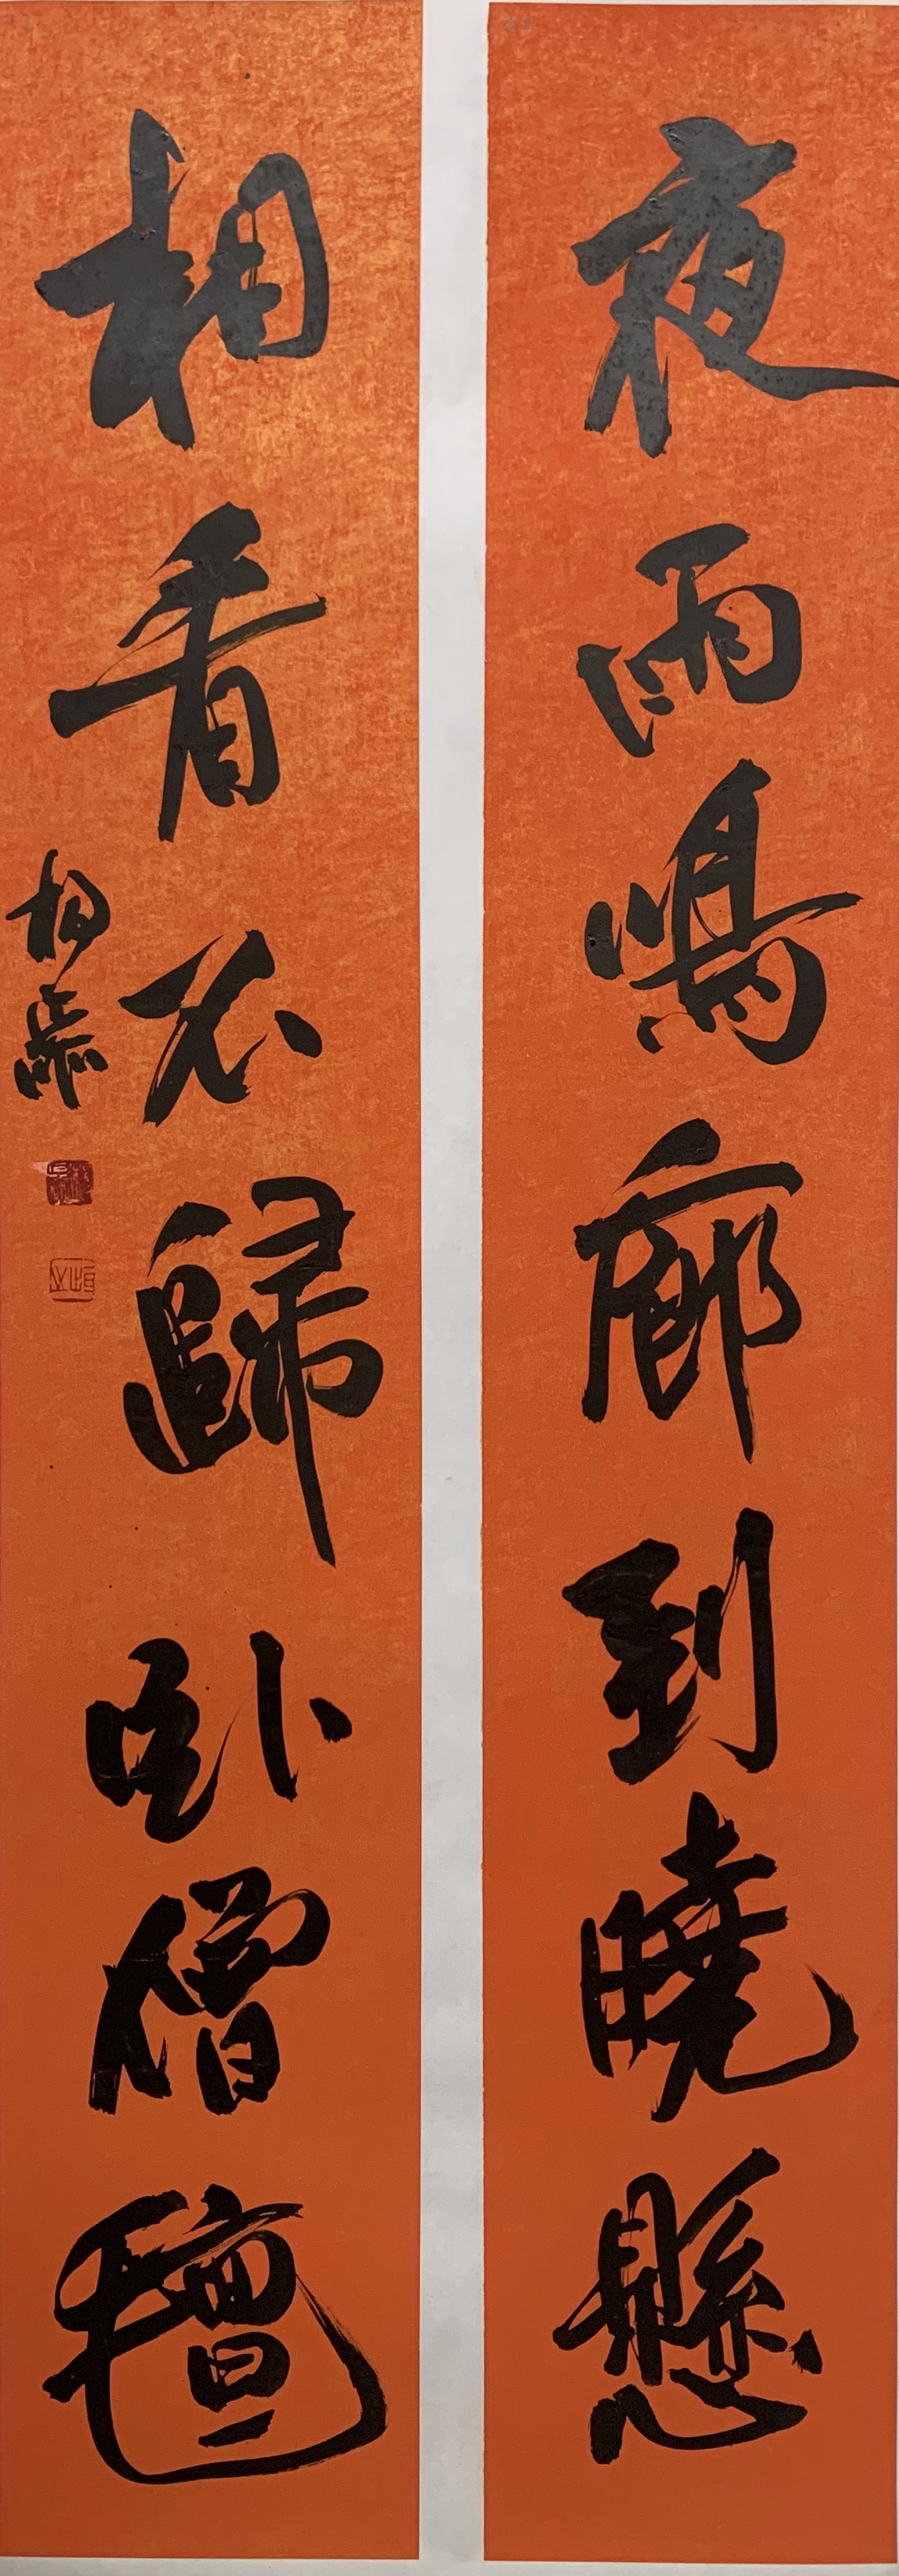 夜雨鳴廊到曉懸
相看不歸卧僧氊